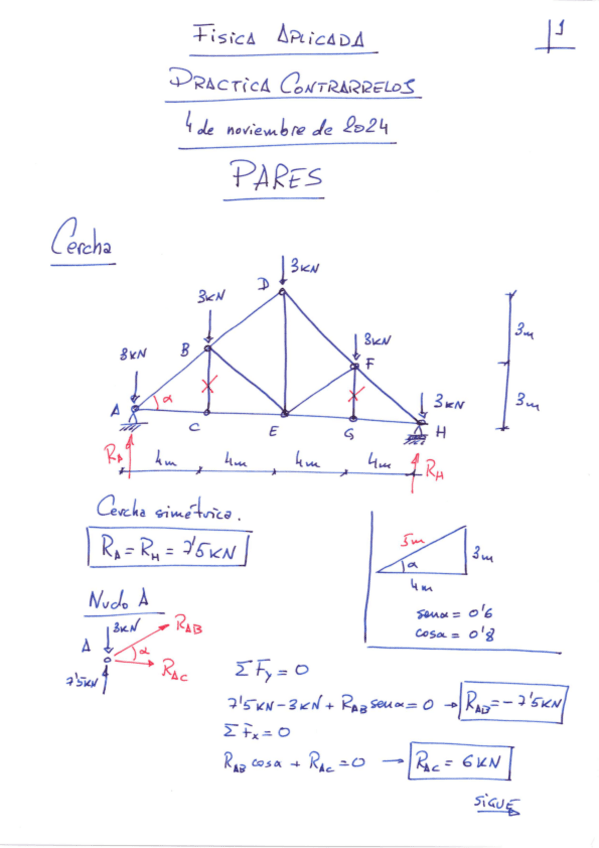 1
FÍSICA APLICADA
PRACTICA CONTRARRELOJ
4 de noviembre de 2024
PARES
Cercha
3KN
D
3KN
B
3KN
F
3KN
3m
A
α
C
E
G
H
3KN
3m
RA
4m
4m
4m
4m
RH
Cercha simétrica.
RA = RH = 7'5 KN
5m
3m
α
4m
senα = 0'6
cosα = 0'8
Nudo A
3KN
RAB
A
α
RAC
7'5KN
ΣFy = 0
7'5KN - 3KN + RAB senα = 0 → RAB = - 7'5KN
ΣFx = 0
RAB cosα + RAC = 0 → RAC = 6KN
SIGUE